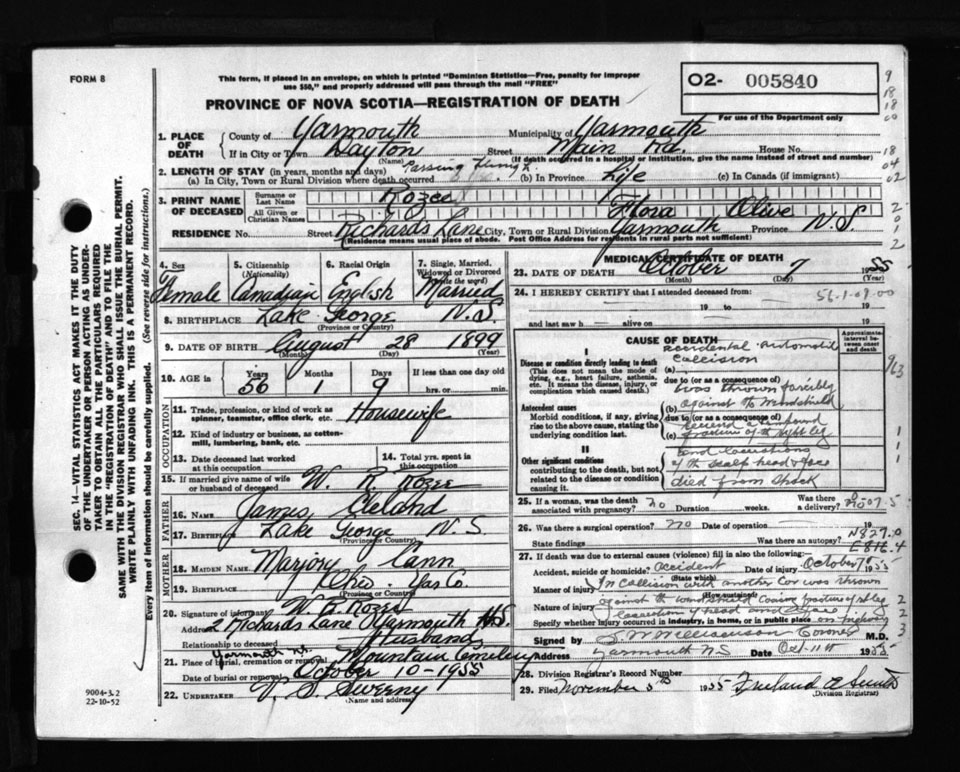 FORM 8
This form, if placed in an envelope, on which is printed "Dominion Statistics—Free, penalty for improper
use $50," and properly addressed will pass through the mail "FREE"
O2- 005840
For use of the Department only
PROVINCE OF NOVA SCOTIA—REGISTRATION OF DEATH
1. PLACE OF DEATH County of Yarmouth Municipality of Yarmouth
If in City or Town Dayton (Name) Street Main Rd. House No.
(If death occurred in a hospital or institution, give the name instead of street and number)
2. LENGTH OF STAY (in years, months and days)
(a) In City, Town or Rural Division where death occurred Passing (b) In Province Life (c) In Canada (if immigrant)
3. PRINT NAME OF DECEASED Surname or Last Name Rozee
All Given or Christian Names Flora Olive
RESIDENCE No. Street Richards Lane City, Town or Rural Division Yarmouth Province N.S.
(Residence means usual place of abode. Post Office Address for residents in rural parts not sufficient)
4. Sex Female
5. Citizenship (Nationality) Canadian
6. Racial Origin English
7. Single, Married, Widowed or Divorced (write the word) Married
8. BIRTHPLACE Lake George N.S.
(Province or Country)
9. DATE OF BIRTH August 28 1899
(Month) (Day) (Year)
10. AGE in Years 56 Months 1 Days 9 If less than one day old hrs. or min.
OCCUPATION
11. Trade, profession, or kind of work as spinner, teamster, office clerk, etc. Housewife
12. Kind of industry or business, as cotton-mill, lumbering, bank, etc.
13. Date deceased last worked at this occupation
14. Total yrs. spent in this occupation
15. If married give name of wife or husband of deceased W. R. Rozee
FATHER
16. Name James Cleland
17. Birthplace Lake George N.S
(Province or Country)
MOTHER
18. MAIDEN NAME Marjory Cann
19. BIRTHPLACE Ohio Yar Co.
(Province or Country)
20. Signature of informant W. R. Rozee
Address 2 Richards Lane Yarmouth N.S.
Relationship to deceased Husband
Yarmouth N.S.
21. Place of burial, cremation or removal Mountain Cemetery
Date of burial or removal October 10-1955
22. UNDERTAKER V. S. Sweeny
(Name and address)
MEDICAL CERTIFICATE OF DEATH
23. DATE OF DEATH October 7 1955
(Month) (Day)
24. I HEREBY CERTIFY that I attended deceased from
19 to 19
and last saw h alive on 19
CAUSE OF DEATH
Approximate interval between onset and death
I
Disease or condition directly leading to death
(This does not mean the mode of dying, e.g., heart failure, asthenia, etc. It means the disease, injury, or complication which caused death.)
(a) Accidental Automobile Collision
due to (or as a consequence of)
Antecedent causes
Morbid conditions, if any, giving rise to the above cause, stating the underlying condition last.
(b) was thrown forcibly against the windshield
due to (or as a consequence of)
(c) received a compound fracture of the right leg
II
Other significant conditions
contributing to the death, but not related to the disease or condition causing it.
and lacerations of the scalp head & face
died from shock
25. If a woman, was the death associated with pregnancy? no Duration weeks. Was there a delivery?
26. Was there a surgical operation? no Date of operation 19
State findings Was there an autopsy?
N827.0
E816.4
27. If death was due to external causes (violence) fill in also the following:
Accident, suicide or homicide? accident Date of injury October 7 1955
(State which)
Manner of injury In Collision with another Car was thrown
(How sustained)
against the windshield
Nature of injury laceration of head and face
Specify whether injury occurred in industry, in home, or in public place on highway
Signed by Coroner M.D.
Address Yarmouth NS Date Oct 11th 1955
28. Division Registrar's Record Number
29. Filed November 5th 1955
(Division Registrar)
SEC. 14—VITAL STATISTICS ACT MAKES IT THE DUTY
OF THE UNDERTAKER OR PERSON ACTING AS UNDER-
TAKER TO OBTAIN ALL THE PARTICULARS REQUIRED
IN THE "REGISTRATION OF DEATH" AND TO FILE THE
SAME WITH THE DIVISION REGISTRAR WHO SHALL ISSUE THE BURIAL PERMIT.
WRITE PLAINLY WITH UNFADING INK. THIS IS A PERMANENT RECORD.
Every item of information should be carefully supplied. (See reverse side for instructions.)
9004-3.2
22-10-52